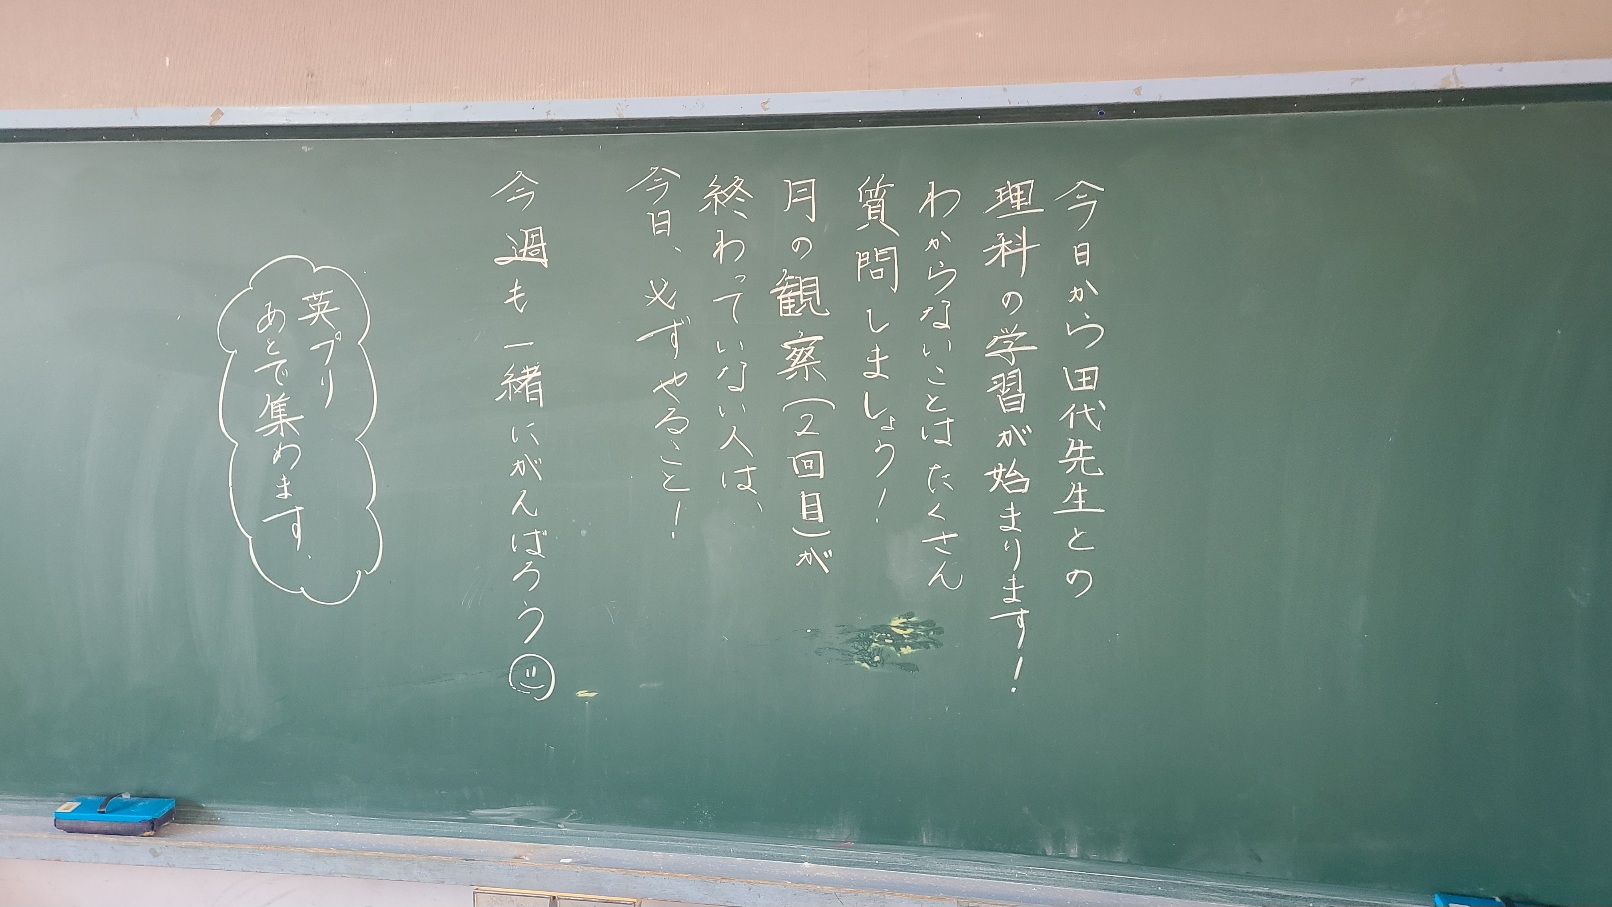 今日から田代先生との
理科の学習が始まります!
わからないことはたくさん
質問しましょう!
月の観察(2回目)が
終わっていない人は、
今日、必ずやること!
今週も一緒にがんばろう
英プリ
あとで集めます.